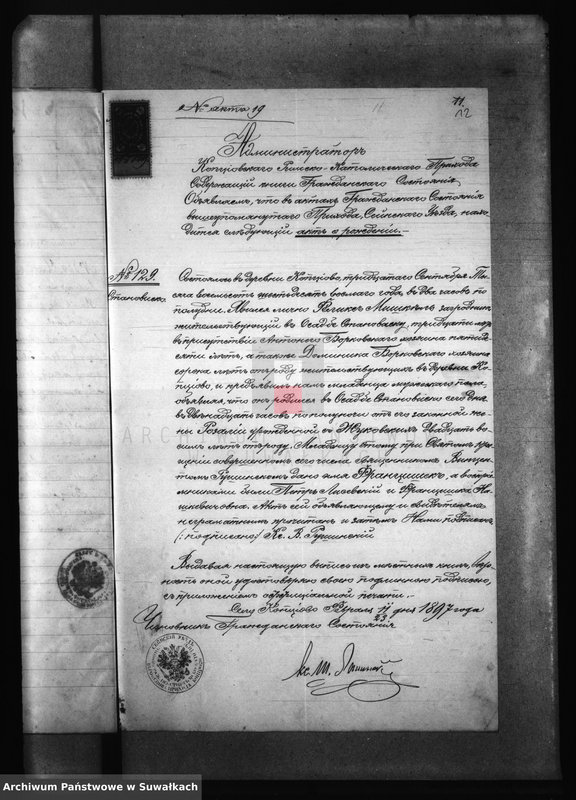 № акта 19
11.
12
Администраторъ
Копціовскаго Римско-Католическаго Прихода
Содержащій книги Гражданскаго Состоянія,
Объявляетъ, что въ актахъ Гражданскаго Состоянія
вышеупомянутаго Прихода, Сейнскаго Уѣзда, нахо-
дится слѣдующій актъ о рожденіи.
№ 129.
Становиско.
Состоялось въ деревни Копціово, тридцатаго Сентября Ты-
сяча восемьсотъ шестьдесятъ восьмаго года, въ два часовъ по
полудни. Явился лично Феликсъ
жительствующій въ Осадѣ Становиску, тридцати
въ присутствіи Антонего Борковскаго хозяина пятиде-
сяти лѣтъ, а также Доминика Борковскаго хозяина
сорока лѣтъ отъ роду жительствующихъ въ деревни Ко-
пціово, и предъявилъ намъ младенца мужескаго пола,
объявляя, что онъ родился въ Осадѣ Становиско
въ двенадцать часовъ по полуночи отъ его законной же-
ны Розаліи урожденной Жуковскихъ двадцать во-
симъ лѣтъ отъ роду. Младенцу этому при Святомъ кре-
щеніи совершенномъ сего числа Священникомъ Викен-
тіемъ дано имя Францишекъ, а воспріе-
мниками были Петръ и Францишка
Актъ сей объявляющему и свидѣтелямъ
неграмотнымъ прочитанъ и затѣмъ Нами подписанъ
(:подписано:) Кс. В.
Выдавая настоящую выпись изъ мѣстныхъ книгъ, вѣр-
ность оной удостовѣряю своею подлинною подписью,
съ приложеніемъ оффиціальной печати.
Село Копціово Февраля 11/23 дня 1897 года
Чиновникъ Гражданскаго Состоянія
Archiwum Państwowe w Suwałkach